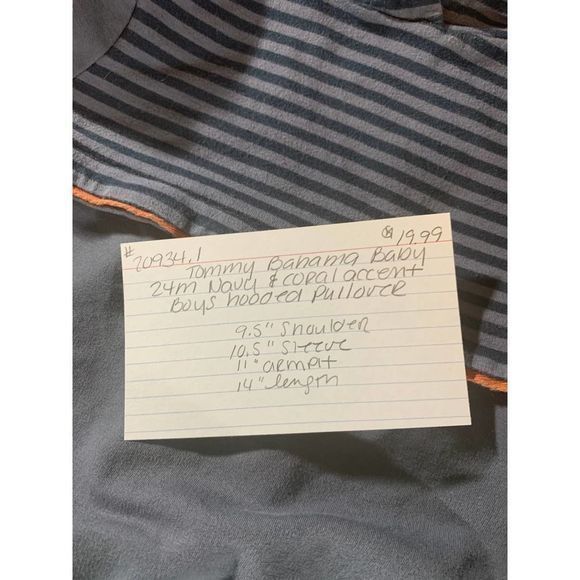 #20934.1 19.99
Tommy Bahama Baby
24m Navy & coral accent
Boys hooded Pullover
9.5" Shoulder
10.5" Sleeve
11" armpit
14" length